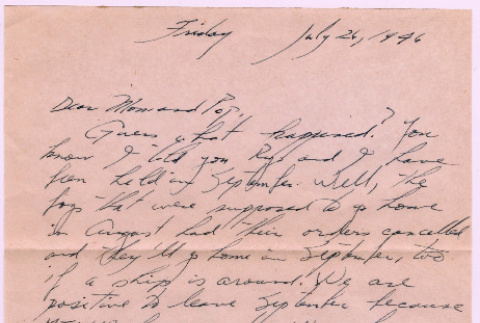 Friday July 26, 1946
Dear Mom and Pop,
Guess what happened? You
know I told you Rys and I have
been held in September. Well, the
boys that were supposed to go home
in August had their orders cancelled
and they'll go home in September, too
if a ship is around. We are
positive to leave September because